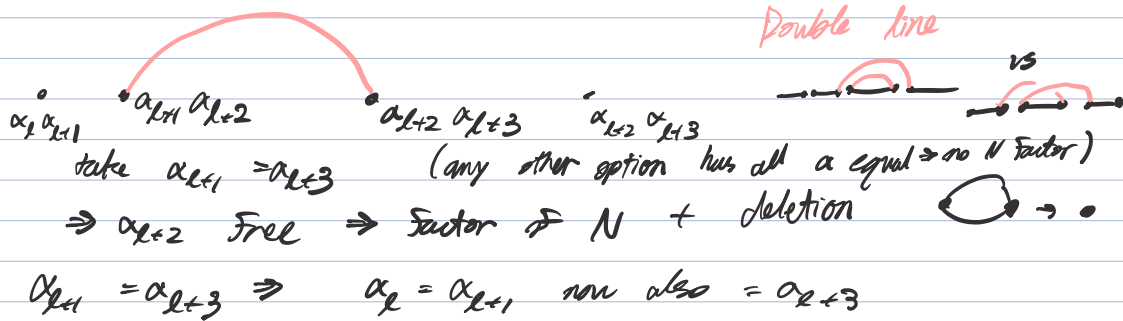 Double line
vs
α_l α_{l+1} α_{l+1} α_{l+2} α_{l+2} α_{l+3} α_{l+2} α_{l+3}
take α_{l+1} = α_{l+3} (any other option has all α equal ⇒ no N factor)
⇒ α_{l+2} free ⇒ Factor of N + deletion →
α_{l+1} = α_{l+3} ⇒ α_l = α_{l+1} now also = α_{l+3}